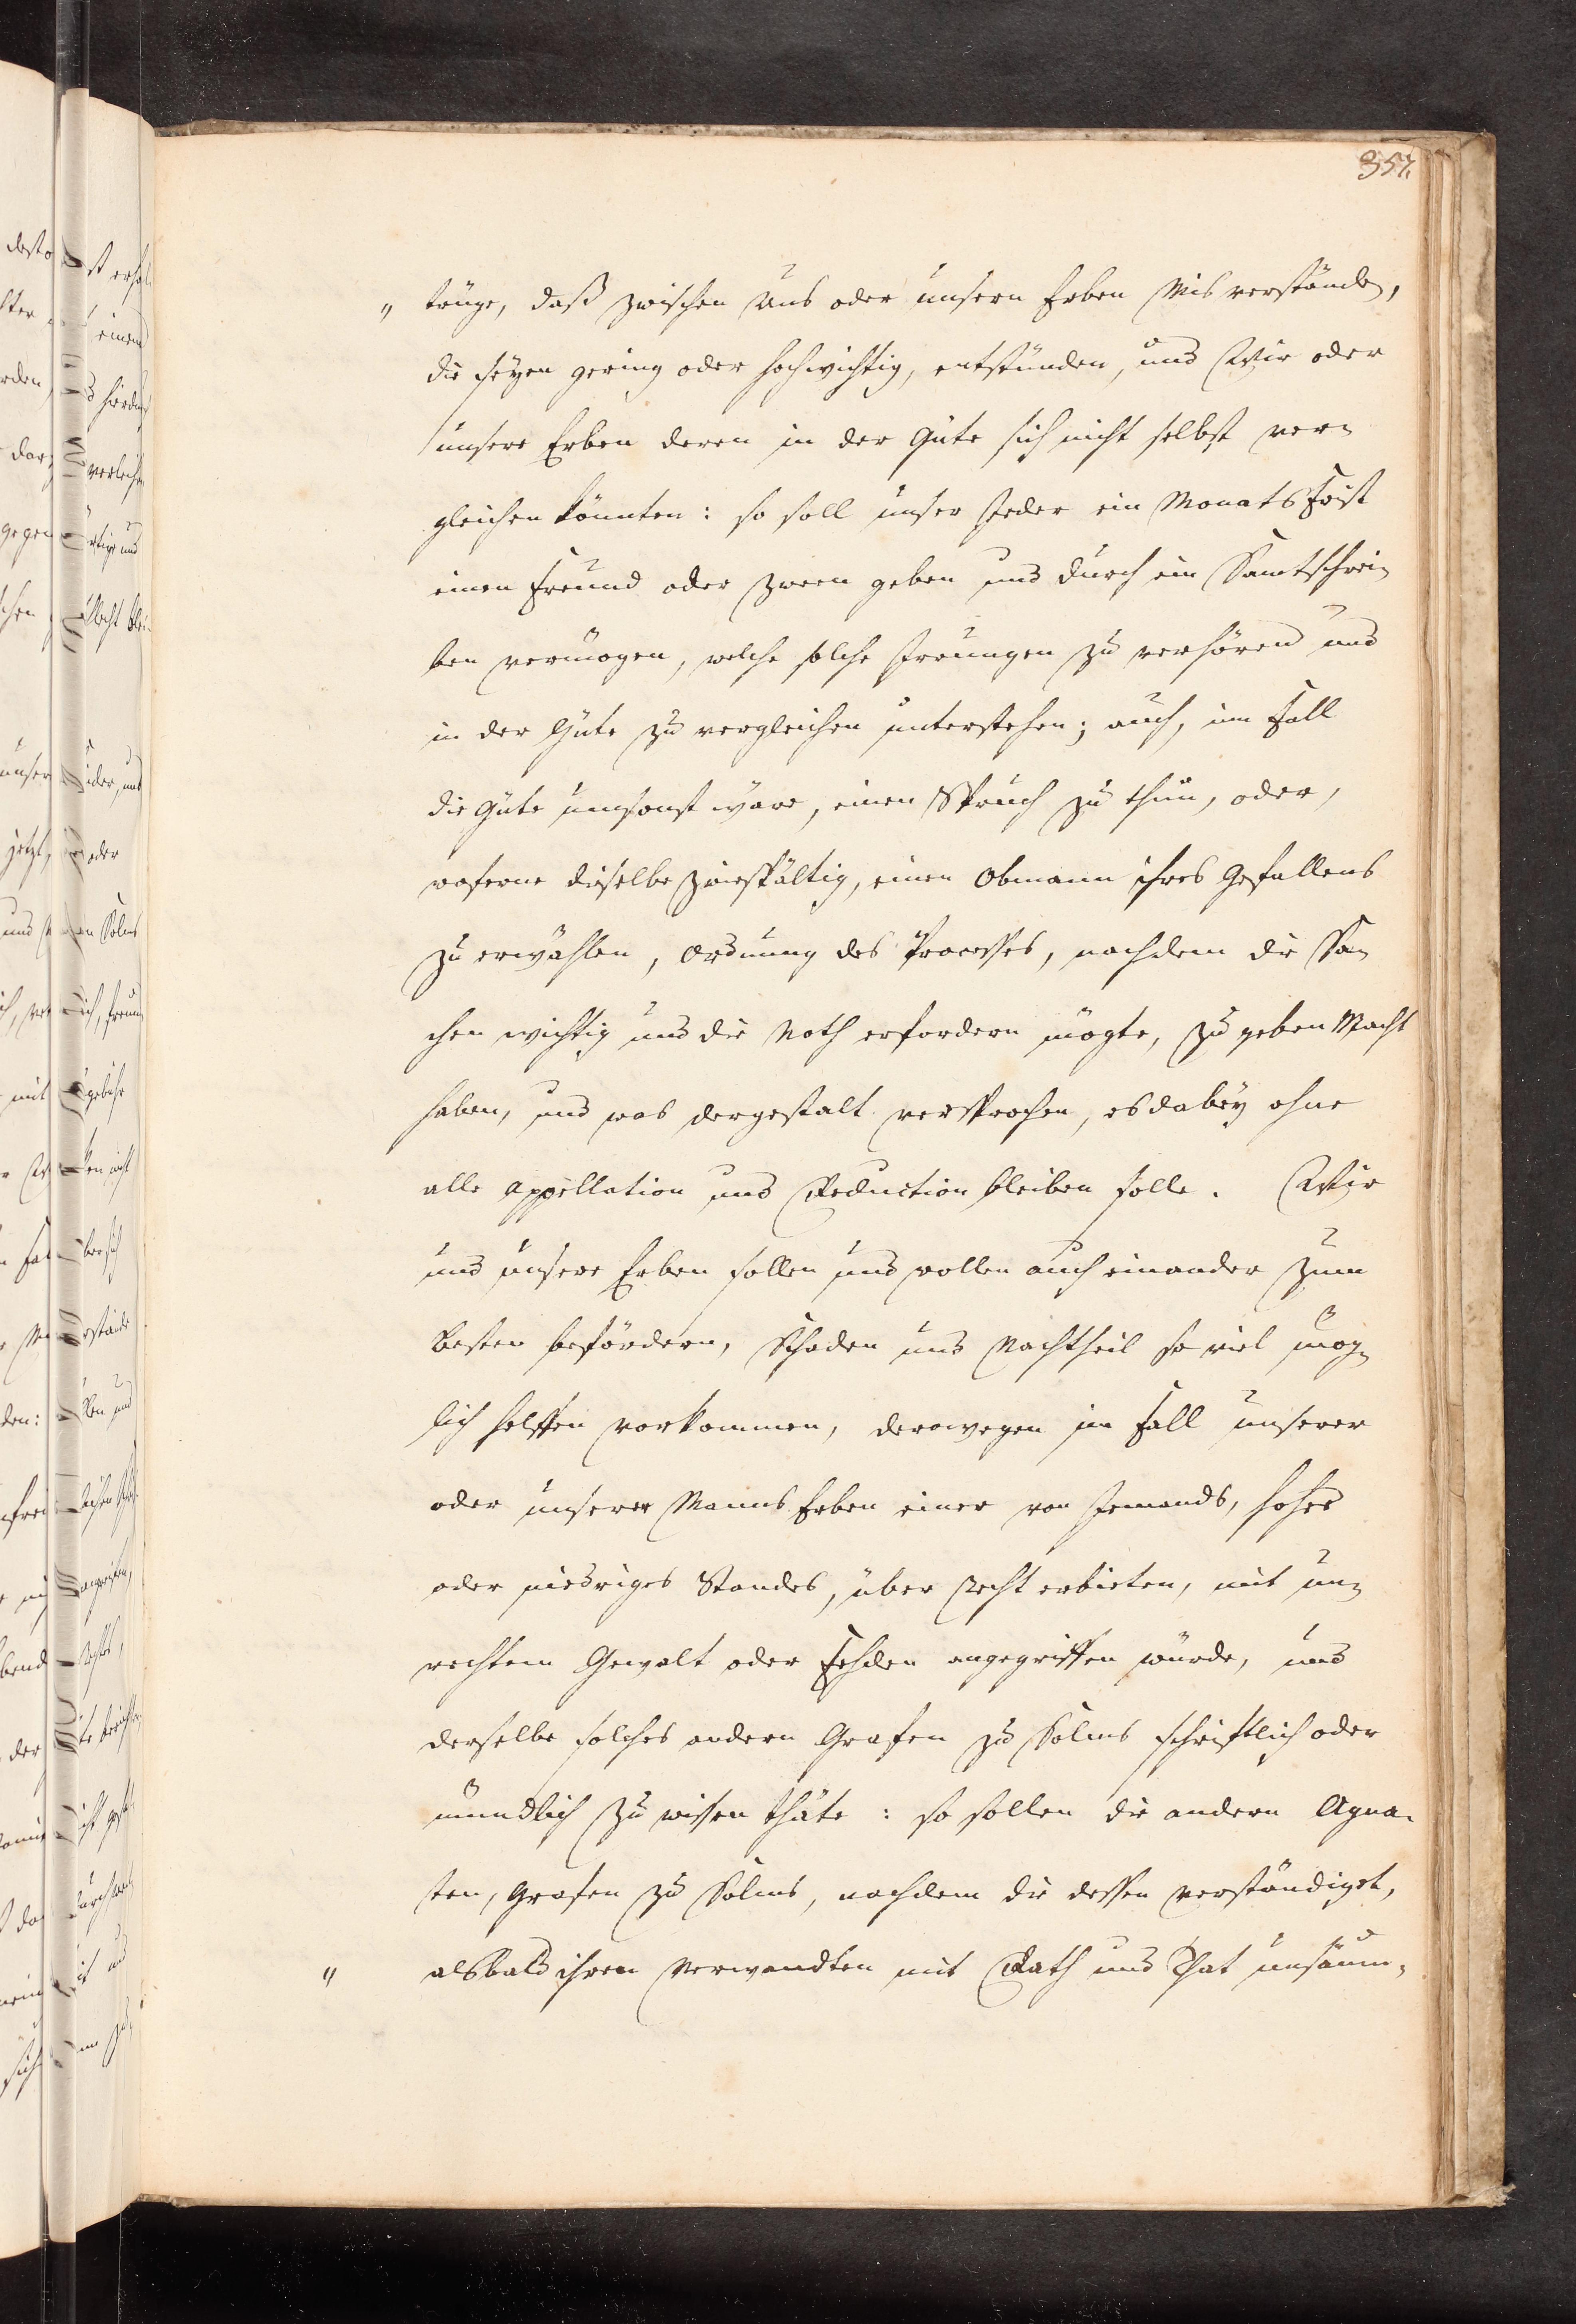 357.
„ trüge, daß zwischen Uns oder unsern Erben Misverstände,
die seyen gering oder hochwichtig, entstünden, und Wir oder
unsere Erben deren in der Güte sich nicht selbst ver-
gleichen könnten: so soll unser Jeder ein Monats Frist
einen Freund oder zween geben und durch ein Samtschrei-
ben vermögen, welche solche Irrungen zu verhören und
in der Güte zu vergleichen unterstehen; auch, im Fall
die Güte umsonst wäre, einen Spruch zu thun, oder,
woferne dieselbe zwiespältig, einen Obmann ihres Gefallens
zu erwählen, Ordnung des Processes, nachdem die Sa-
chen wichtig und die Noth erfordern mögte, zu geben Macht
haben, und was dergestalt versprochen, es dabey ohne
alle Appellation und Reduction bleiben solle. Wir
und unsere Erben sollen und wollen auch einander zum
besten befördern, Schaden und Nachtheil so viel mög-
lich helffen vorkommen, derowegen im Fall unserer
oder unserer Manns Erben einer von Jemands, hohes
oder niedriges Standes, über Recht erbieten, mit un-
rechtem Gewalt oder Fehden angegriffen würde, und
derselbe solches andern Grafen zu Solms schriftlich oder
mündlich zu wissen thäte: so sollen die andern Agna-
ten, Grafen zu Solms, nachdem die dessen verständiget,
„ alsbald ihren Verwandten mit Rath und That unsäum-